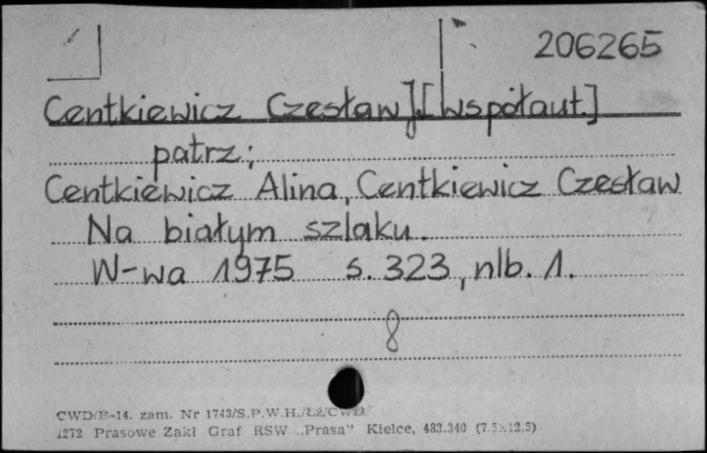 206265
Centkiewicz Czesław] [Współaut.]
patrz:
Centkiewicz Alina, Centkiewicz Czesław
Na białym szlaku.
W-wa 1975 s. 323, nlb. 1.
8
CWD/B-14. zam. Nr 1743/S.P.W.H./ŁŻ/CWD/
1272 Prasowe Zakł Graf RSW „Prasa" Kielce, 483.340 (7.5×12.5)